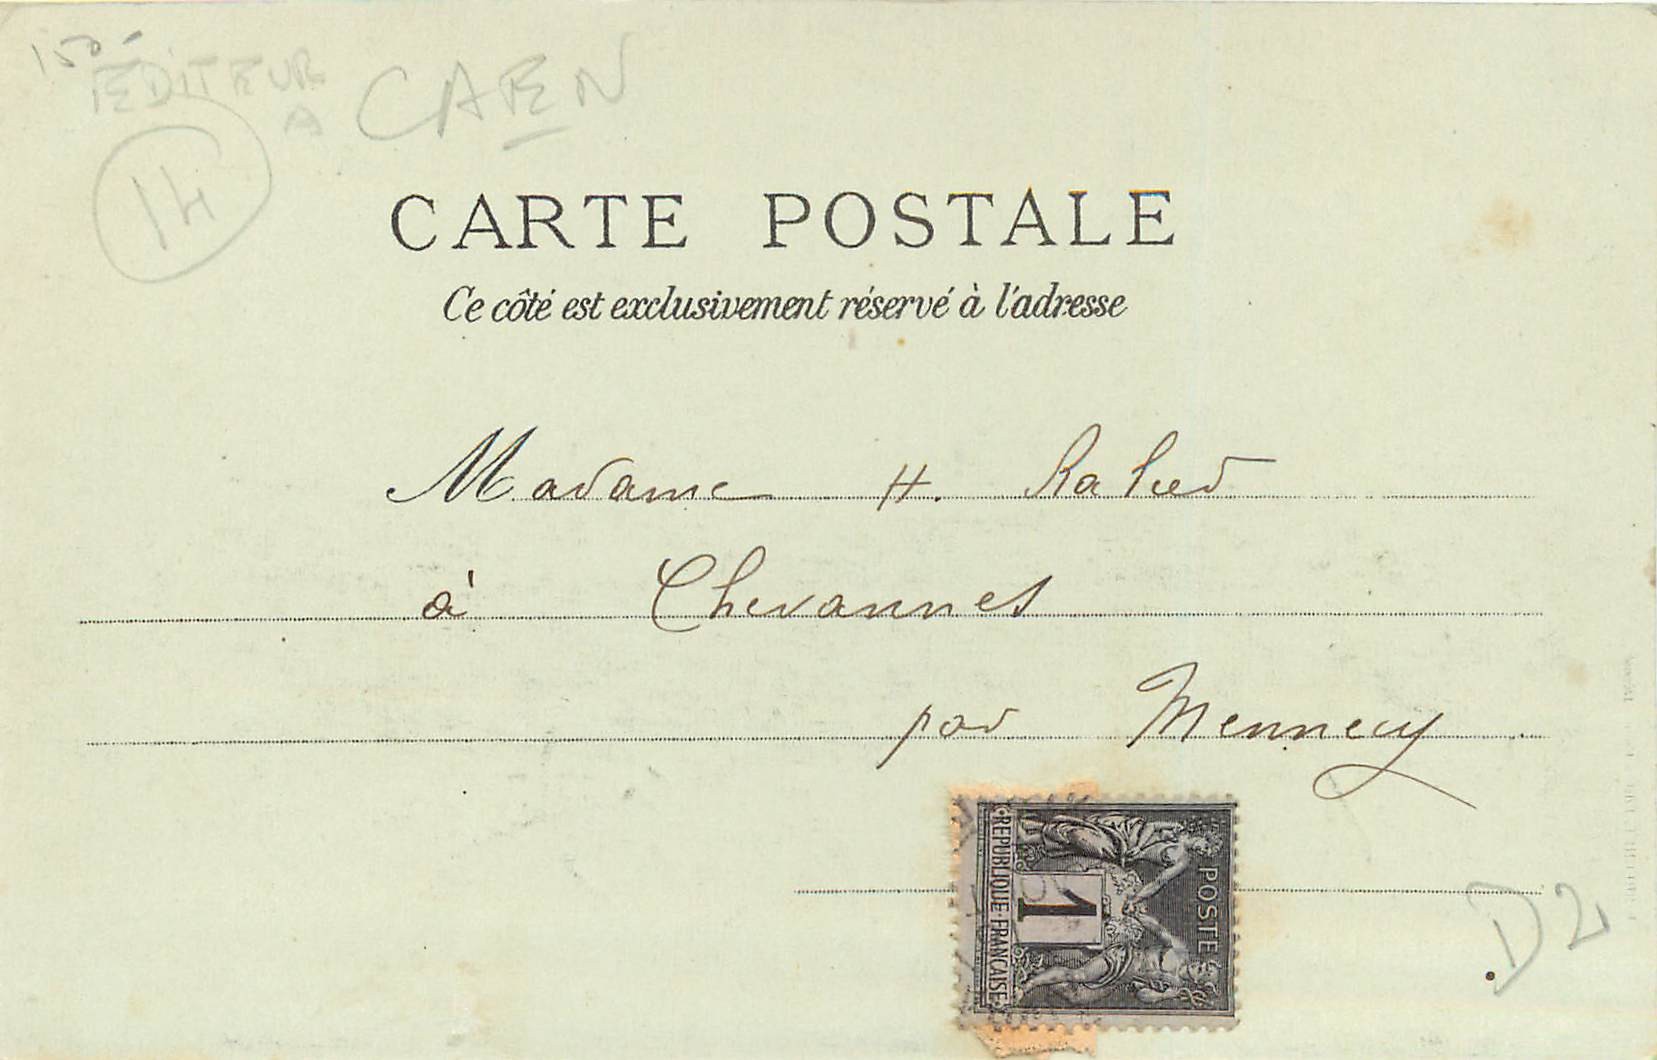 150
EDITEUR
A CAEN
14
CARTE POSTALE
Ce côté est exclusivement réservé à l'adresse
Madame H.
à Chevannes
par Mennecy
POSTE
1
REPUBLIQUE FRANÇAISE
D2